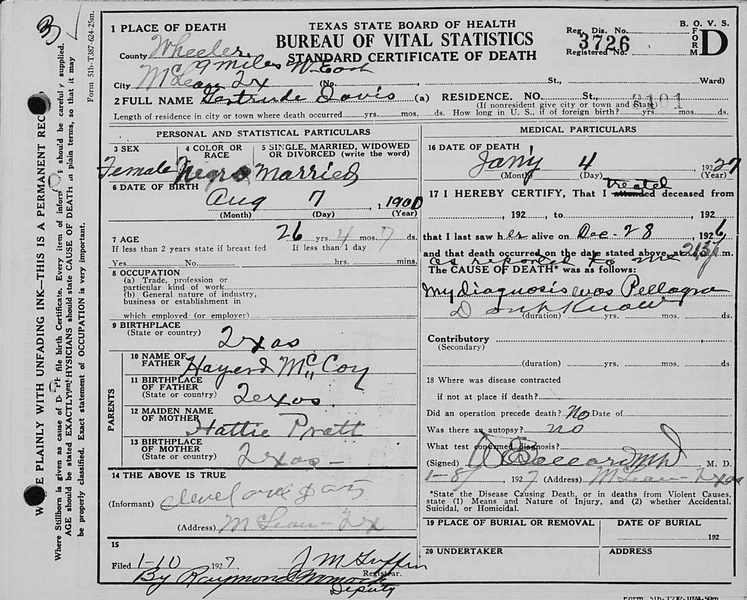 3
Form 51b-T387-624-25m.
WRITE PLAINLY WITH UNFADING INK—THIS IS A PERMANENT
Where Stillborn is given as cause of file birth Certificate. Every item of should be carefully supplied.
AGE should be stated EXACTLY. PHYSICIANS should state CAUSE OF DEATH in plain terms, so that it may
be properly classified. Exact statement of OCCUPATION is very important.
1 PLACE OF DEATH
TEXAS STATE BOARD OF HEALTH
BUREAU OF VITAL STATISTICS
STANDARD CERTIFICATE OF DEATH
Reg. Dis. No.
3726
Registered No.
B. O. V. S.
FORM D
County Wheeler
9 miles
City McLean Tx (No. St., Ward)
2 FULL NAME Gertrude Davis (a) RESIDENCE. NO. St.,
(If nonresident give city or town and State)
Length of residence in city or town where death occurred yrs. mos. ds. How long in U. S., if of foreign birth? yrs. mos. ds.
PERSONAL AND STATISTICAL PARTICULARS
3 SEX
Female
4 COLOR OR RACE
Negro
5 SINGLE, MARRIED, WIDOWED OR DIVORCED (write the word)
Married
6 DATE OF BIRTH
Aug 7, 1900
(Month) (Day) (Year)
7 AGE 26 yrs 4 mos. 7 ds.
If less than 2 years state if breast fed If less than 1 day
Yes No hrs. mins.
8 OCCUPATION
(a) Trade, profession or
particular kind of work
(b) General nature of industry,
business or establishment in
which employed (or employer)
9 BIRTHPLACE
(State or country) Texas
PARENTS
10 NAME OF FATHER McCoy
11 BIRTHPLACE OF FATHER
(State or country) Texas
12 MAIDEN NAME OF MOTHER Hattie Pratt
13 BIRTHPLACE OF MOTHER
(State or country) Texas
14 THE ABOVE IS TRUE
(Informant)
(Address) McLean - Tx
15
Filed 1-10 1927 J M
Registrar.
By Raymond
Deputy
MEDICAL PARTICULARS
16 DATE OF DEATH
Jany 4 1927
(Month) (Day) (Year)
17 I HEREBY CERTIFY, That I attended deceased from
treated
, 192 , to , 192 ,
that I last saw her alive on Dec-28 1926
and that death occurred on the date stated above at m.
as reported to me
The CAUSE OF DEATH* was as follows:
My Diagnosis was Pellagra
Dont Know
(duration) yrs. mos. ds.
Contributory
(Secondary)
(duration) yrs. mos. ds.
18 Where was disease contracted
if not at place of death?
Did an operation precede death? No Date of
Was there an autopsy? no
What test confirmed diagnosis?
(Signed) M. D.
1-8 1927 (Address) McLean-Texas
*State the Disease Causing Death, or in deaths from Violent Causes,
state (1) Means and Nature of Injury, and (2) whether Accidental,
Suicidal, or Homicidal.
19 PLACE OF BURIAL OR REMOVAL
DATE OF BURIAL
192
20 UNDERTAKER
ADDRESS